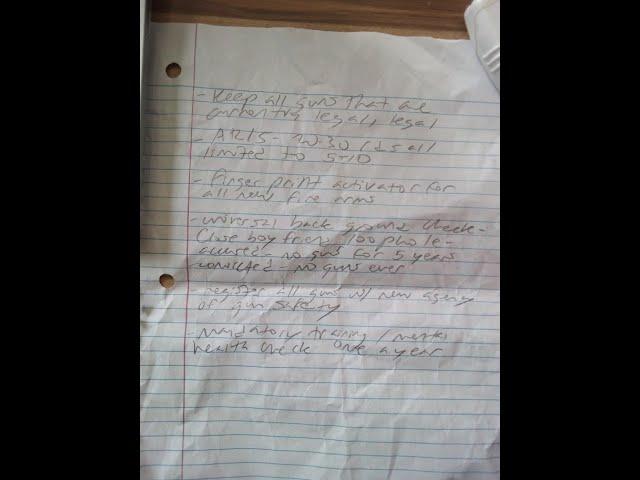 - Keep all guns that are
currently legal, legal
- AR15 - no 30 rds all
limited to 5-10
- Finger print activator for
all new fire arms
- universal back ground check -
Close boy friend loophole -
accused - no guns for 5 years
convicted - no guns ever
- register all guns w/ new agency
of gun safety
- mandatory training / mental
health check once a year